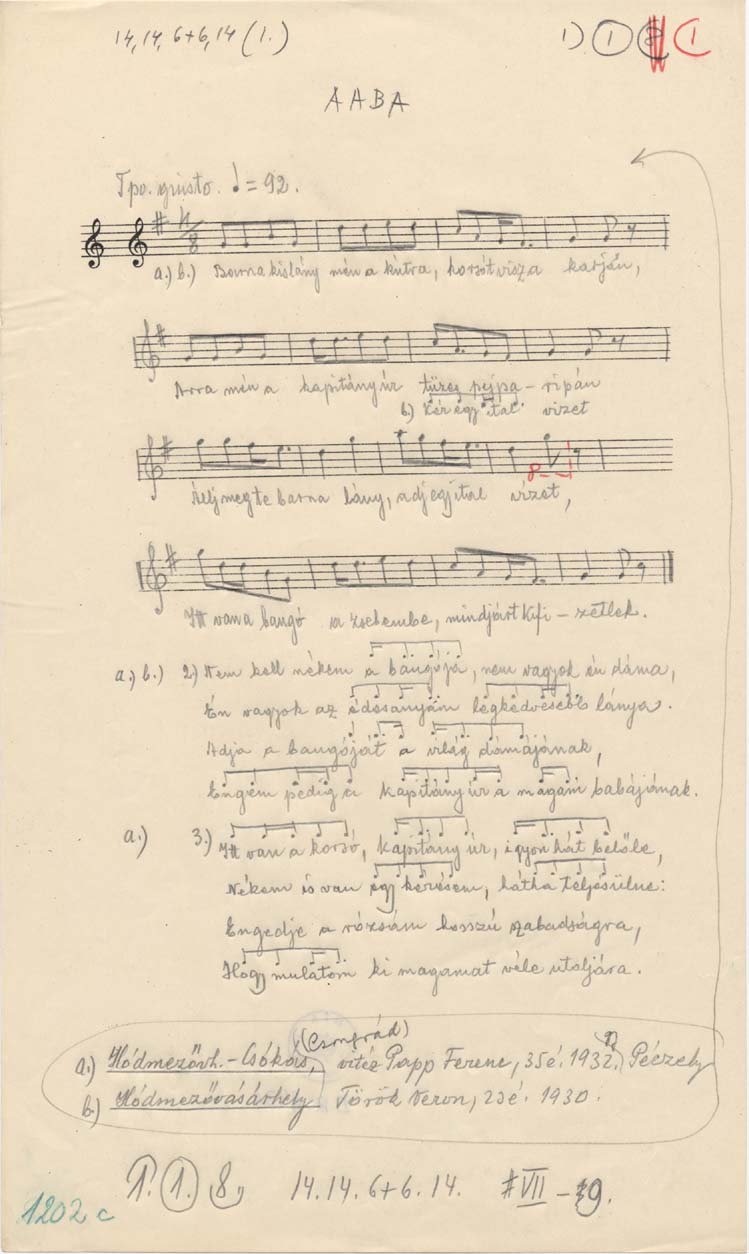 14, 14, 6+6, 14 (1.)
1) 1 8 1
A A B A
Tpo. giusto. ♩ = 92.
4/8
a.) b.) Barna kislány mén a kútra, korsót visz a karján,
Arra mén a kapitány úr tüzes pejpa-ripán
b) Kér egy ital vizet
Állj meg te barna lány, adj egy ital vizet,
8
Itt van a bangó a zsebembe, mindjárt kifi-zetlek.
a.) b.) 2.) Nem kell nékem a bangója, nem vagyok én dáma,
Én vagyok az édosanyám legkedvesebb lánya.
Adja a bangóját a világ dámájának,
Engem pedig a kapitány úr a magam babájának.
a.) 3.) Itt van a korsó, kapitány úr, igyon hát belőle,
Nékem is van egy kérésem, hátha teljesülne:
Engedje a rózsám hosszú szabadságra,
Hogy mulatom ki magamat véle utoljára.
(Csongrád)
a.) Hódmezővh.-Csókás, vitéz Papp Ferenc, 35 é. 1932. Péczely
b.) Hódmezővásárhely Török Veron, 23 é. 1930.
1. 1. 8, 14. 14. 6+6. 14. #VII - 9.
1202 c